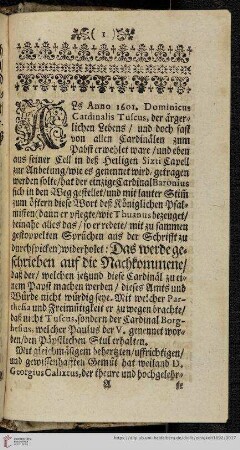 ( 1. )
ALs Anno 1601. Dominicus
Cardinalis Tuscus, der ärger-
lichen Lebens / und doch fast
von allen Cardinälen zum
Pabst erwehlet ware / und eben
aus seiner Cell in deß Heiligen Sixti Capell
zur Anbetung / wie es genennet wird / getragen
werden solte / hat der einzige Cardinal Baronius
sich in den Weg gestellet / und mit lauter Stim̃
zum öftern diese Wort deß Königlichen Psal-
misten (dann er pflegte / wie Thuanus bezeuget /
beinahe alles das / so er redete / mit zu sammen
gestoppelten Sprüchen aus der Schrifft zu
durchspicken) wiederholet: Das werde ge-
schrieben auf die Nachkommen /
daß der / welchen jetzund diese Cardinäl zuei-
nem Papst machen werden / dieses Amts und
Würde nicht würdig seye. Mit welcher Par-
rhesia und Freimütigkeit er zu wegen brachte /
daß nicht Tuscus, sondern der Cardinal Borg-
hesius, welcher Paulus der V. genennet wor-
den / den Päpstlichen Stul erhalten.
Mit gleichmäßigem behertzten / aufrichtigen /
und gewissenhafften Gemüt hat weiland D.
Georgius Calixtus, der theure und hochgelehr-
A te